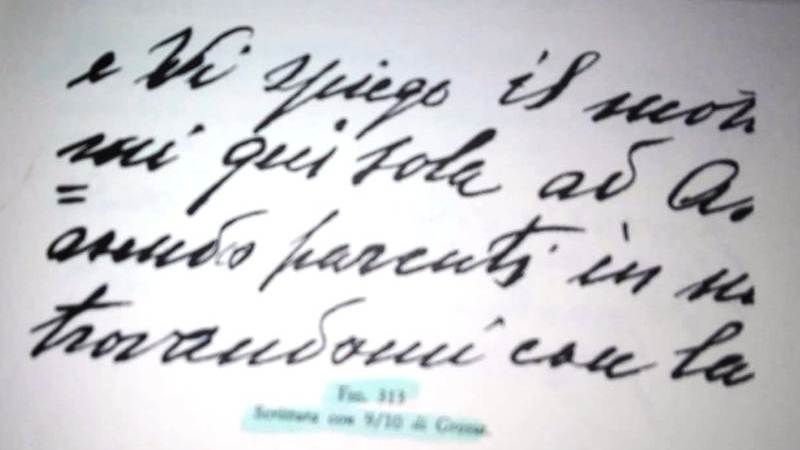 e Vi spiego il moti
mi qui sola ad A.
=
avendo parenti in n.
trovandomi con la
Fig. 313
Scrittura con 9/10 di Grossa.